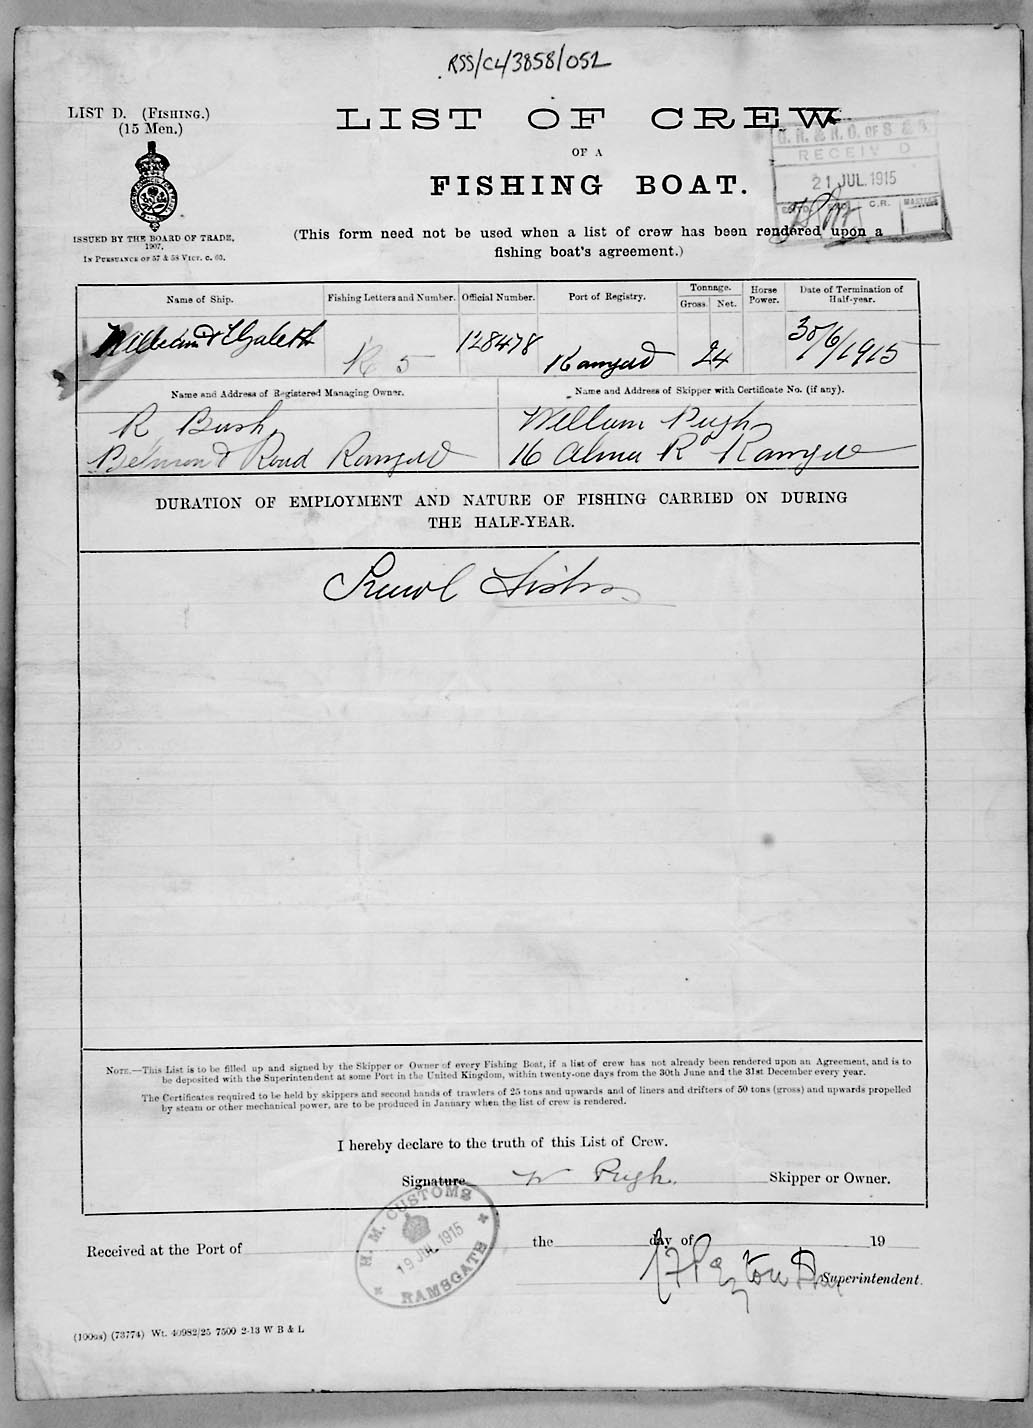 RSS/CL/3858/052
LIST D. (FISHING.)
(15 Men.)
LIST OF CREW
OF A
FISHING BOAT.
RECEIV D
21 JUL 1915
C.R.
ISSUED BY THE BOARD OF TRADE,
1907,
IN PURSUANCE OF 57 & 58 VICT. C. 60.
(This form need not be used when a list of crew has been rendered upon a
fishing boat's agreement.)
Name of Ship. Fishing Letters and Number. Official Number. Port of Registry. Tonnage. Horse Power. Date of Termination of Half-year.
Gross. Net.
William & Elizabeth R 5 128478 Ramsgate 24 30/6/1915
Name and Address of Registered Managing Owner. Name and Address of Skipper with Certificate No. (if any).
R Bush William Pugh
Belmond Road Ramsgate 16 Alma Rd Ramsgate
DURATION OF EMPLOYMENT AND NATURE OF FISHING CARRIED ON DURING
THE HALF-YEAR.
NOTE.—This List is to be filled up and signed by the Skipper or Owner of every Fishing Boat, if a list of crew has not already been rendered upon an Agreement, and is to
be deposited with the Superintendent at some Port in the United Kingdom, within twenty-one days from the 30th June and the 31st December every year.
The Certificates required to be held by skippers and second hands of trawlers of 25 tons and upwards and of liners and drifters of 50 tons (gross) and upwards propelled
by steam or other mechanical power, are to be produced in January when the list of crew is rendered.
I hereby declare to the truth of this List of Crew.
Signature W Pugh Skipper or Owner.
H. M. CUSTOMS
19 JUL 1915
RAMSGATE
Received at the Port of the day of 19
Superintendent.
(100os) (73774) Wt. 40982/25 7500 2-13 W B & L